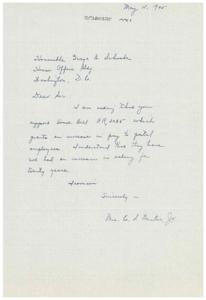 May 5, 1945
Honorable George A.
House Office Bldg
Washington, D.C.
Dear Sir
I am asking that you
support House Bill H.R. 2035 which
grants an increase in pay to postal
employees. I understand that they have
not had an increase in salary for
twenty years.
Sincerely
Mrs. C. S. Jr.